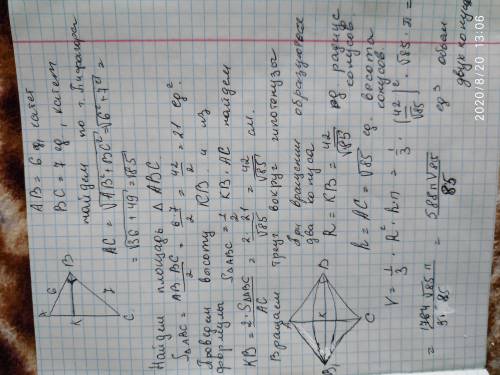 AB = 6 ед. катет
BC = 7 ед. катет
найдем по т. Пифагора
AC = √AB² + BC² = √6² + 7² =
= √36 + 49 = √85
A
6
B
K
7
C
Найдем площадь Δ ABC
S∆ABC = AB·BC/2 = 6·7/2 = 42/2 = 21 ед²
Проведем высоту KB и из
формулы S∆ABC = 1/2 KB · AC найдем
KB = 2·S∆ABC/AC = 2·21/√85 = 42/√85 см.
Вращаем треуг. вокруг гипотенузы
При вращении образуются
два конуса
R = KB = 42/√85 ед радиус
конусов.
h = AC = √85 ед. высота
конусов.
A
B
K
B₁
C
V = 1/3 · R² · h · π = 1/3 · (42/√85)² · √85 · π =
= 1764 √85 π / 3 · 85 = 588 π √85 / 85 ед³ объем
двух конусов
2020/8/20 13:06